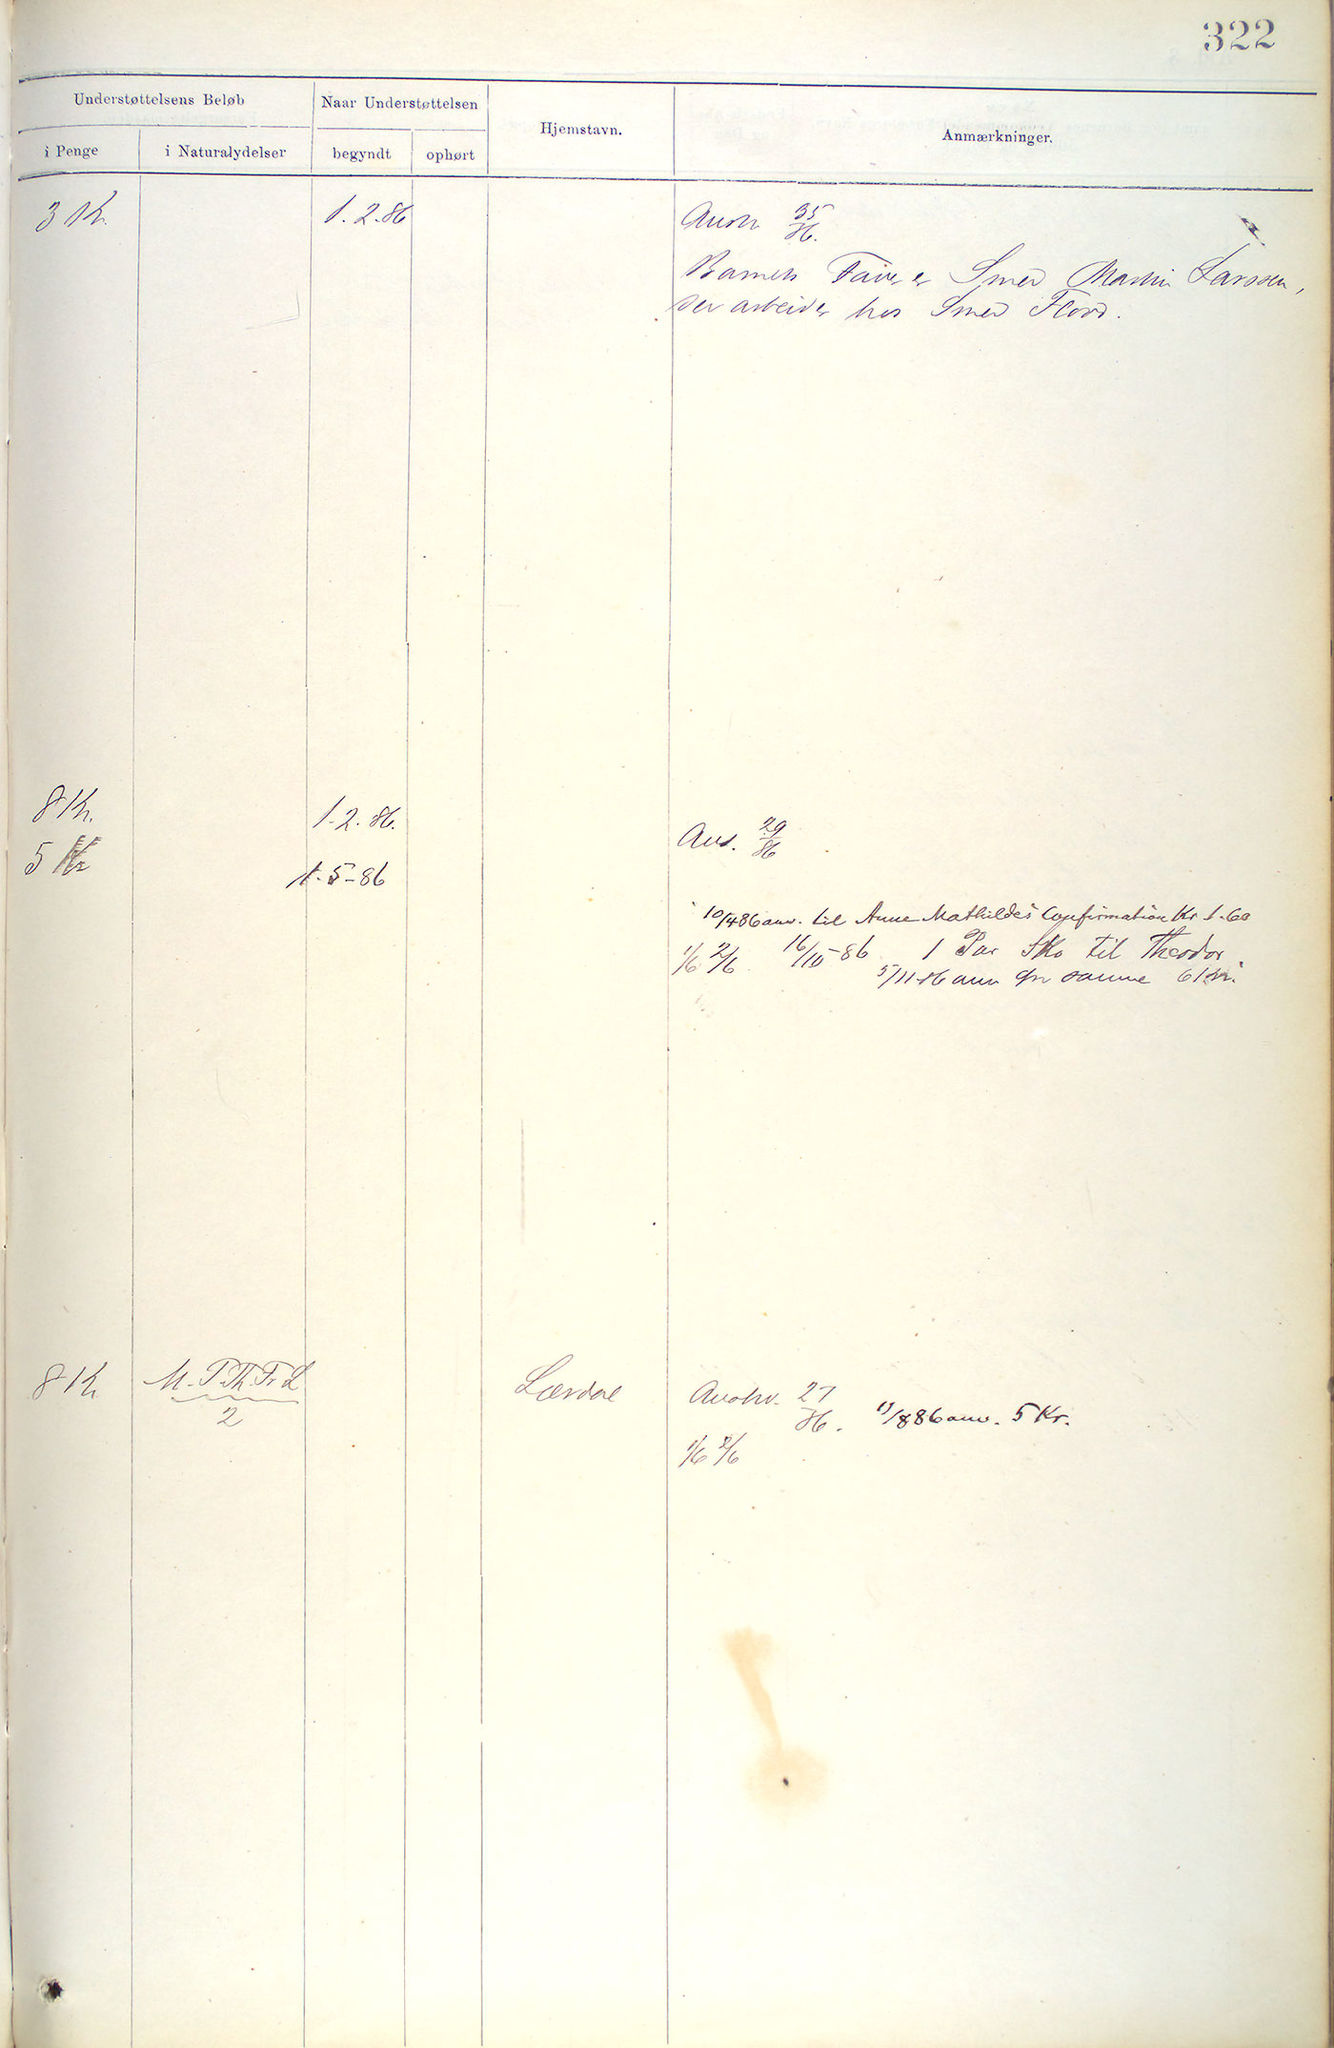 322
Understøttelsens Beløb
Naar Understøttelsen
Hjemstavn.
Anmærkninger.
i Penge
i Naturalydelser
begyndt
ophørt
3 Kr.
1.2.86
35
86.
Barnets Fader er Smed Martin Larssen,
der arbeider hos Smed Flood.
8 Kr.
1.2.86.
29
86
5 Kr
1.5-86
10/4 86 anv. til Anne Mathilde's Confirmation Kr
1/6 2/6 16/10-86 1 Par Sko til Theodor
5/11-86 anv for samme 6 Kr.
8 Kr
M. T. Th. Fr. L
2
Lærdal
27
86.
8 86 anv. 5 Kr.
1/6 2/6